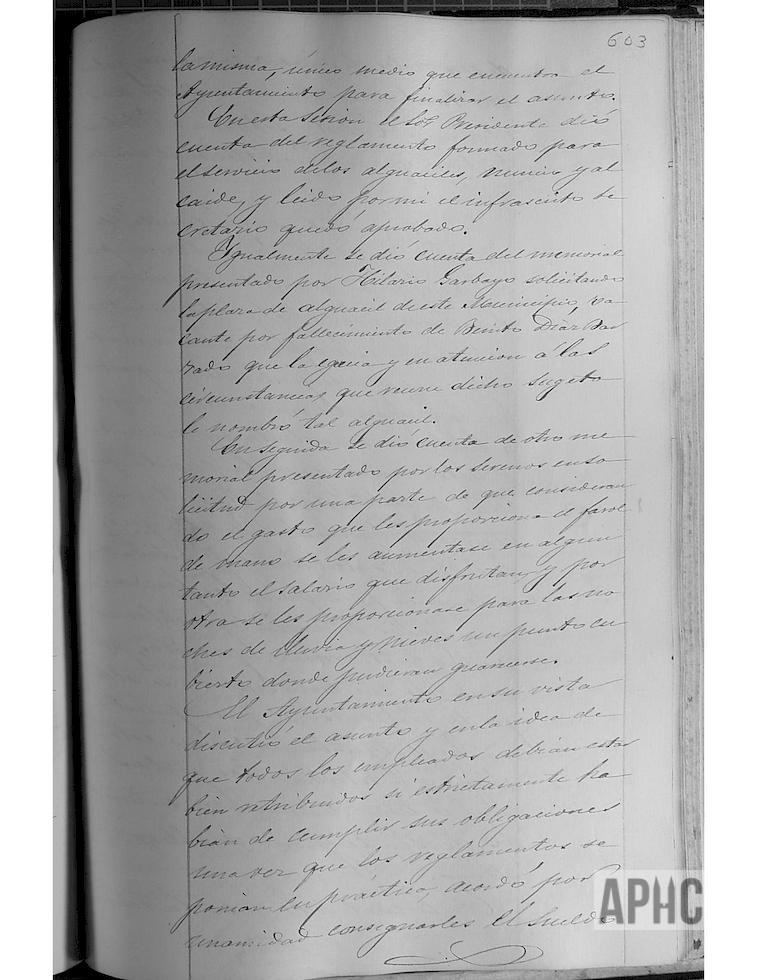 603
la misma, único medio que encuentra el
Ayuntamiento para finalizar el asunto.
En esta sesion el Sor Presidente dió
cuenta del reglamento formado para
el servicio de los alguaciles, nuncio y al
caide, y leido por mi el infrascrito Se
cretario quedó aprobado.
Igualmente se dió cuenta del memorial
presentado por Hilario Garbayo solicitando
la plaza de alguacil de este Municipio, va
cante por fallecimiento de Benito Diaz
rado que la egercia y en atencion á las
circunstancias que reune dicho sugeto
le nombró tal alguacil.
En seguida se dió cuenta de otro me
morial presentado por los serenos en so
licitud por una parte de que consideran
do el gasto que les proporciona el farol
de mano se les aumentase en algun
tanto el salario que disfrutan, y por
otra se les proporcionase para las no
ches de lluvia y nieves un punto cu
bierto donde pudieran guarecerse.
El Ayuntamiento en su vista
discutió el asunto y en la idea de
que todos los empleados debian estar
bien retribuidos si estrictamente ha
bian de cumplir sus obligaciones
una vez que los reglamentos se
ponian en práctica, acordó por
unanimidad consignarles el sueldo
APHC